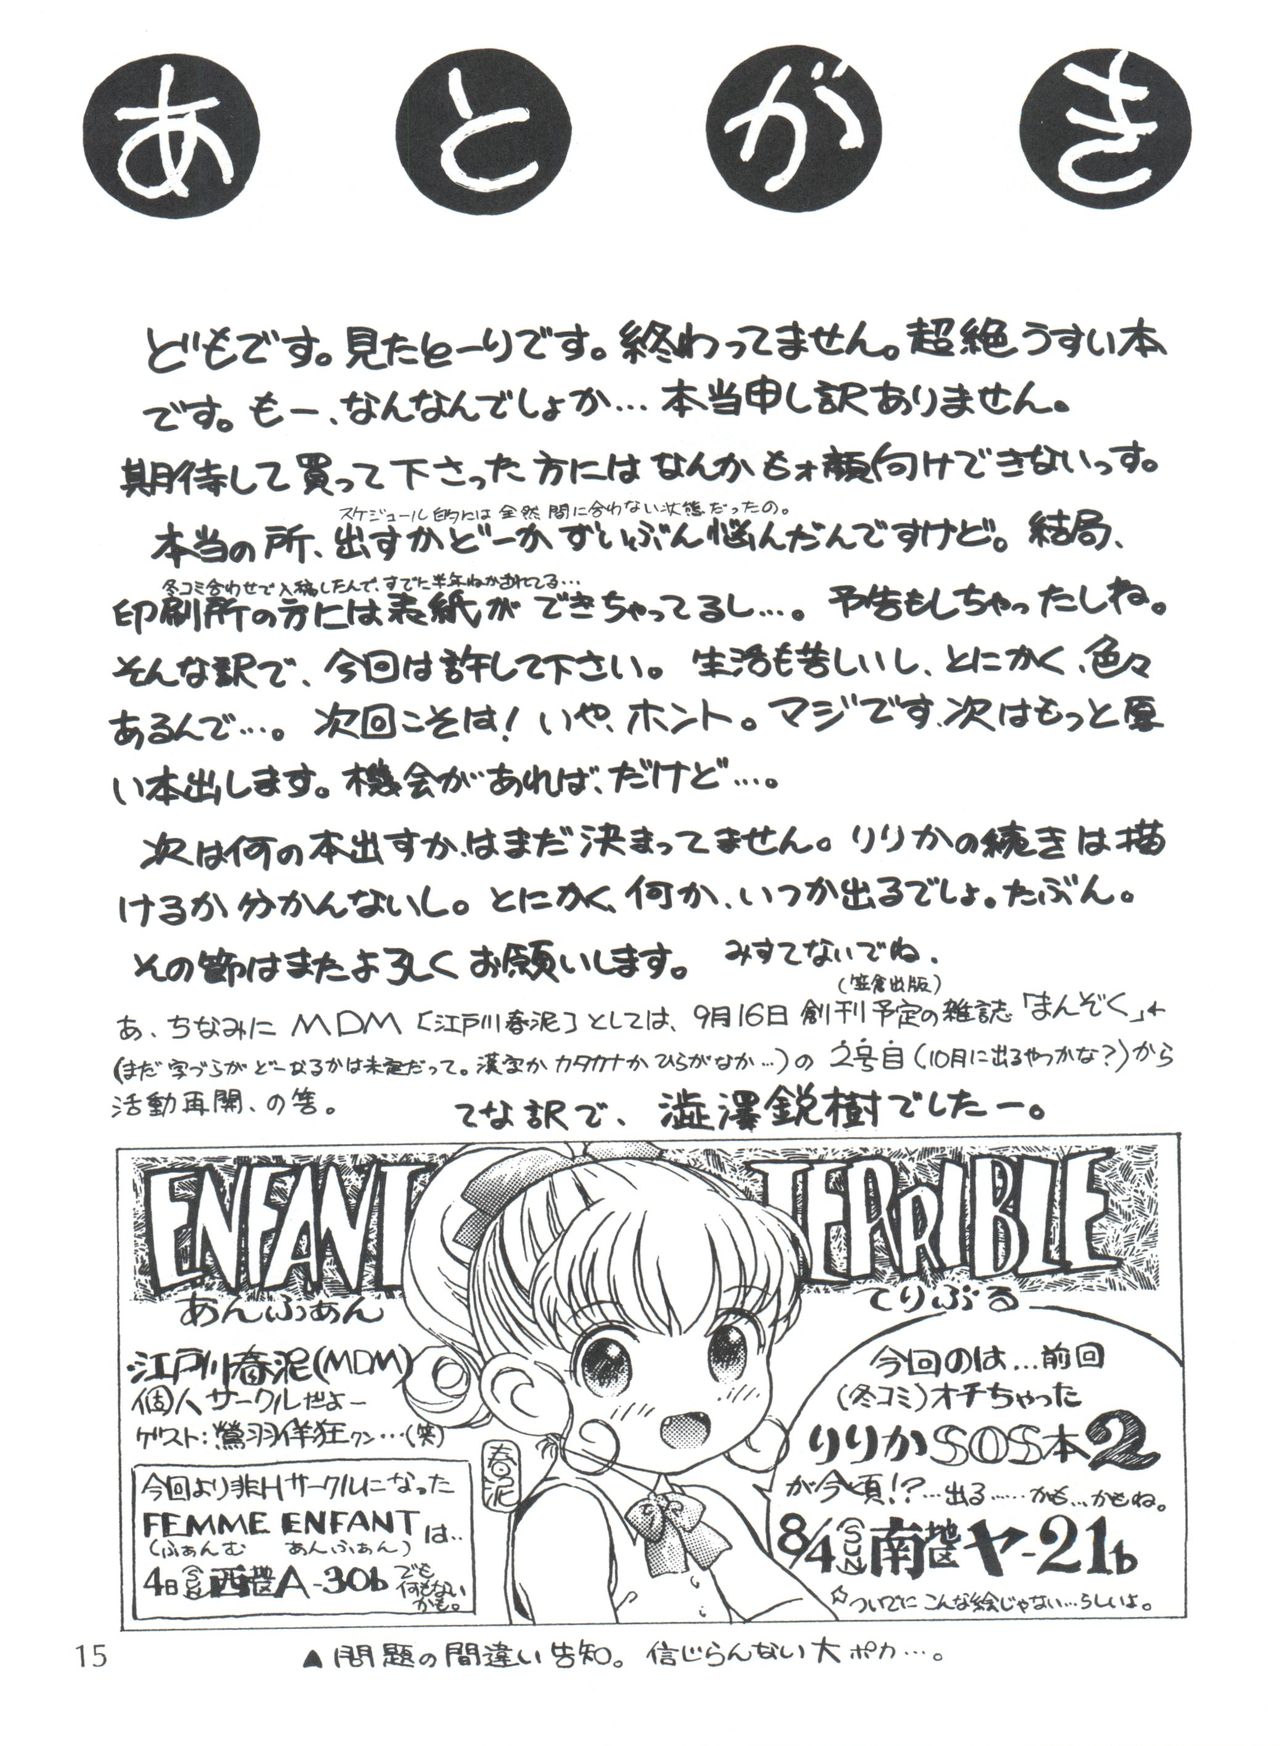 あとがき
どもです。見たとーりです。終わってません。超絶うすい本
です。もー、なんなんでしょか…本当申し訳ありません。
期待して買って下さった方にはなんかもォ顔向けできないっす。
スケジュール的には全然間に合わない状態だったの。
本当の所、出すかどーかずいぶん悩んだんですけど。結局、
冬コミ合わせで入稿したんで、すでに半年ねかされてる…
印刷所の方には表紙ができちゃってるし…。予告もしちゃったしね。
そんな訳で、今回は許して下さい。生活も苦しいし、とにかく、色々
あるんで…。次回こそは!いや、ホント。マジです、次はもっと厚
い本出します。機会があれば、だけど…。
次は何の本出すか、はまだ決まってません。りりかの続きは描
けるか分かんないし。とにかく、何か、いつか出るでしょ。たぶん。
その節はまたよろしくお願いします。みすてないでね、
(笠倉出版)
あ、ちなみにMDM[江戸川春泥]としては、9月16日創刊予定の雑誌「まんぞく」←
(まだ字づらがどーなるかは未定だって。漢字かカタカナかひらがなか…)の2号目(10月に出るやつかな?)から
活動再開、の筈。
てな訳で、澁澤鋭樹でしたー。
ENFANT TERRIBLE
あんふぁん てりぶる
江戸川春泥(MDM)
個人サークルだよー
ゲスト:鶯羽徉狂クン…(笑)
春泥
今回より非Hサークルになった
FEMME ENFANTは…
(ふぁんむ あんふぁん)
4日(SUN)西地区A-30b
でも何もないかも。
今回のは…前回
(冬コミ)オチちゃった
りりかSOS本2
が今頃!?…出る……かも…かもね。
8/4(SUN)南地区ヤ-21b
☆ついでにこんな絵じゃない…らしいよ。
▲問題の間違い告知。信じらんない大ポカ…。
15